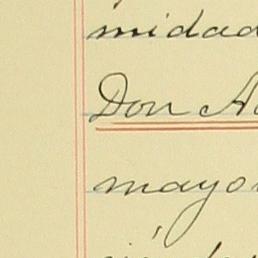 midad
Don A
mayo